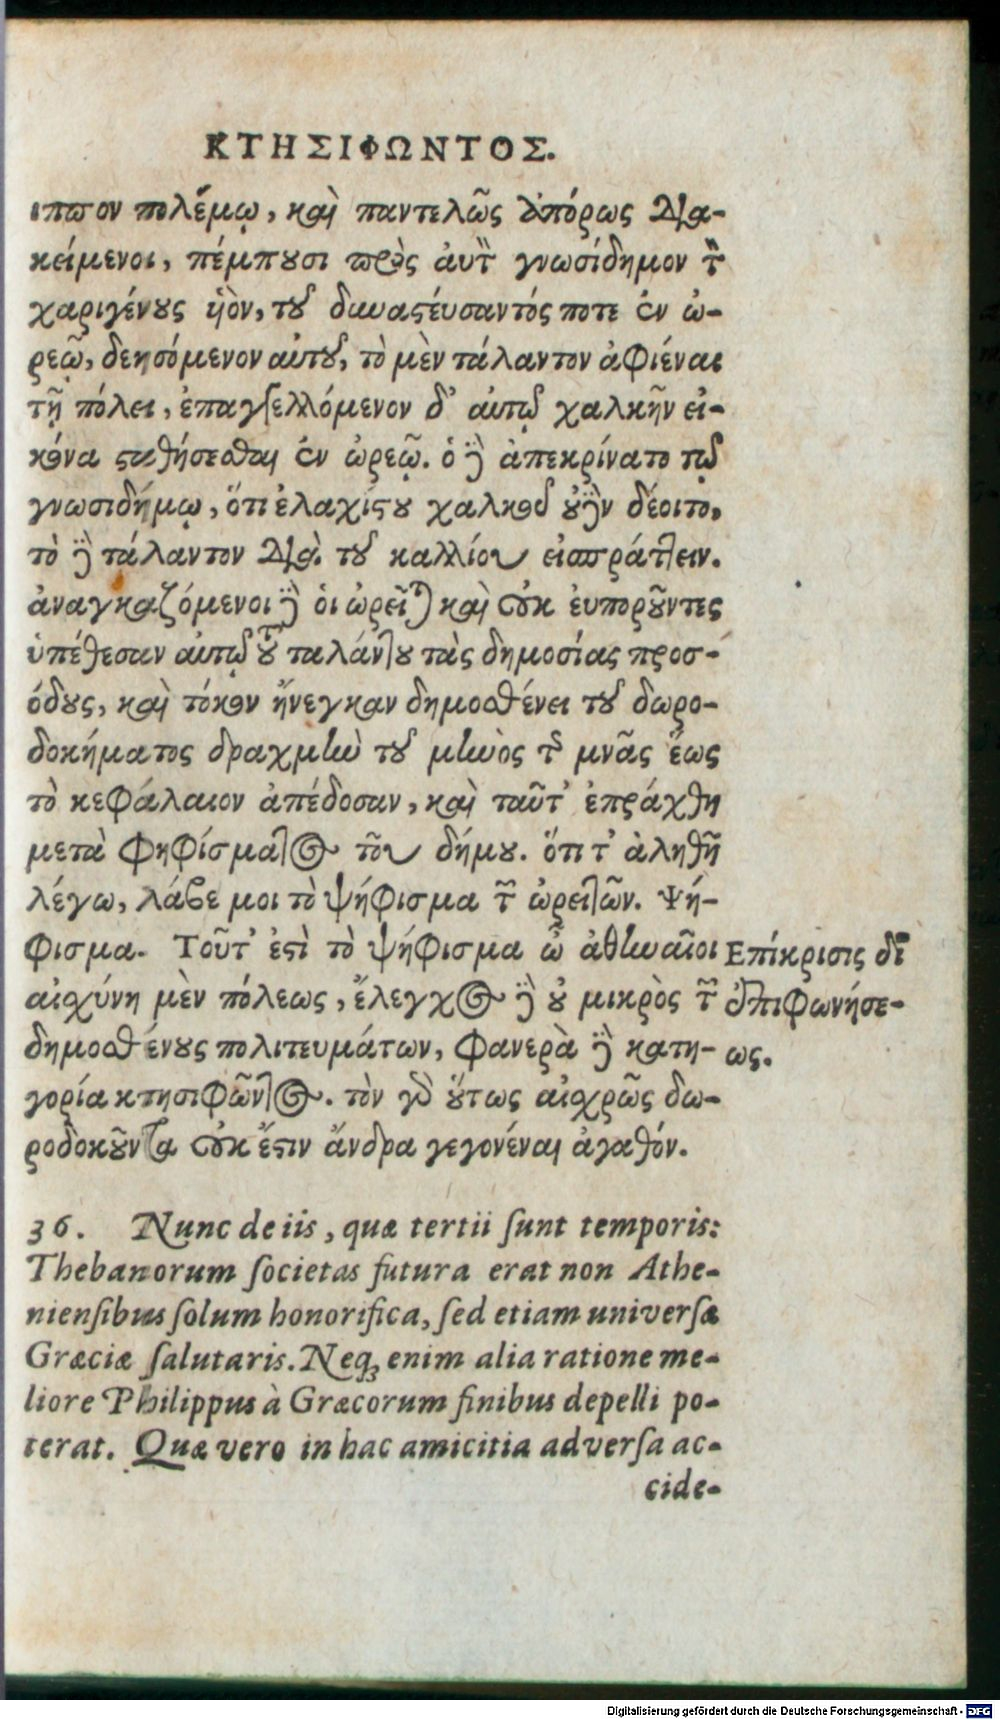 ΚΤΗΣΙΦΩΝΤΟΣ.
ιππον πολέμῳ, καὶ παντελῶς ἀπόρως δια-
κείμενοι, πέμπουσι πρὸς αὐτὸν γνωσίδημον τὸν
χαριγένους ὑὸν, τοῦ δυναστεύσαντός ποτε ἐν ὠ-
ρεῷ, δεησόμενον αὐτοῦ, τὸ μὲν τάλαντον ἀφιέναι
τῇ πόλει, ἐπαγγελλόμενον δ' αὐτῷ χαλκῆν εἰ-
κόνα σταθήσεσθαι ἐν ὠρεῷ. ὁ δὲ ἀπεκρίνατο τῷ
γνωσιδήμῳ, ὅτι ἐλαχίστου χαλκοῦ οὐδὲν δέοιτο,
τὸ δὲ τάλαντον διὰ τοῦ καλλίου εἰσπράττειν.
ἀναγκαζόμενοι δὲ οἱ ὠρεῖται καὶ οὐκ εὐποροῦντες
ὑπέθεσαν αὐτῷ τοῦ ταλάντου τὰς δημοσίας προσ-
όδους, καὶ τόκον ἤνεγκαν δημοσθένει τοῦ δωρο-
δοκήματος δραχμὴν τοῦ μηνὸς τῆς μνᾶς ἕως
τὸ κεφάλαιον ἀπέδοσαν, καὶ ταῦτ' ἐπράχθη
μετὰ ψηφίσματος τοῦ δήμου. ὅτι τ' ἀληθῆ
λέγω, λάβε μοι τὸ ψήφισμα τῶν ὠρειτῶν. Ψή-
φισμα. Τοῦτ' ἐστὶ τὸ ψήφισμα ὦ ἀθηναῖοι
αἰσχύνη μὲν πόλεως, ἔλεγχος δὲ οὐ μικρὸς τῶν
δημοσθένους πολιτευμάτων, φανερὰ δὲ κατη-
γορία κτησιφῶντος. τὸν γὰρ οὕτως αἰσχρῶς δω-
ροδοκοῦντα οὐκ ἔστιν ἄνδρα γεγονέναι ἀγαθόν.
Επίκρισις δι'
ἐπιφωνήσε-
ως.
36. Nunc de iis, quæ tertii ſunt temporis:
Thebanorum ſocietas futura erat non Athe-
nienſibus ſolum honorifica, ſed etiam univerſæ
Græciæ ſalutaris. Neq; enim alia ratione me-
liore Philippus à Græcorum finibus depelli po-
terat. Quæ vero in hac amicitia adverſa ac-
cide-
Digitalisierung gefördert durch die Deutsche Forschungsgemeinschaft - DFG